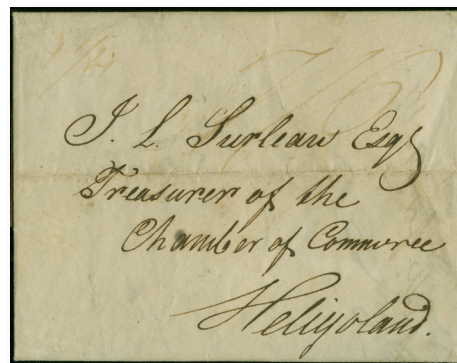 J. L. Surleau Esqr
Treasurer of the
Chamber of Commerce
Heligoland.